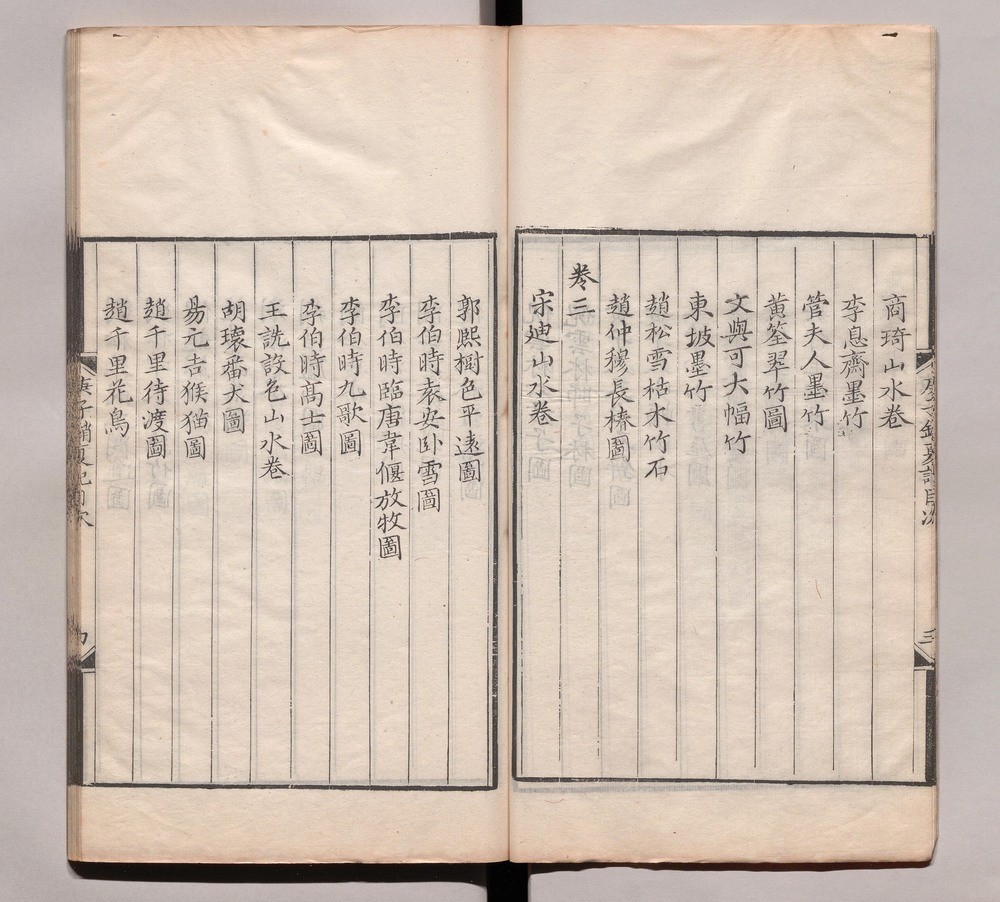 商琦山水卷
李息齋墨竹
管夫人墨竹
黄筌翠竹圖
文與可大幅竹
東坡墨竹
趙松雪枯木竹石
趙仲穆長楱圖
卷三
宋迪山水卷
郭熙樹色平遠圖
李伯時袁安卧雪圖
李伯時臨唐韋偃放牧圖
李伯時九歌圖
李伯時高士圖
王詵設色山水卷
胡瓌番犬圖
易元吉猴猫圖
趙千里待渡圖
趙千里花鳥